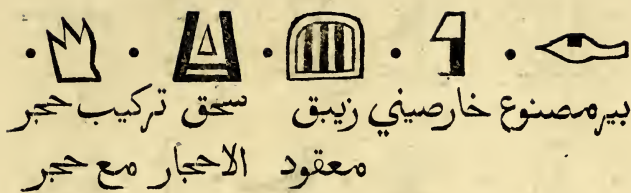 بيرمصنوع خارصيني زيبق سحق تركيب حجر
معقود الاحجار مع حجر